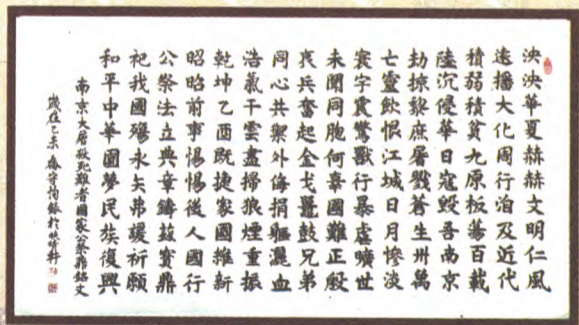 泱泱華夏赫赫文明仁風
遠播大化周行洎及近代
積弱積貧九原板蕩百載
陸沉侵華日寇毀吾南京
劫掠黎庶屠戮蒼生卅萬
亡靈飲恨江城日月慘淡
寰宇震驚獸行暴虐曠世
未聞同胞何辜國難正殷
哀兵奮起金戈鼉鼓兄弟
同心共禦外侮捐軀灑血
浩氣干雲盡掃狼煙重振
乾坤乙酉既捷家國維新
昭昭前事惕惕後人國行
公祭法立典章鑄茲寶鼎
祀我國殤永矢弗諼祈願
和平中華圓夢民族復興
南京大屠殺死難者國家公祭鼎銘文
歲在乙未